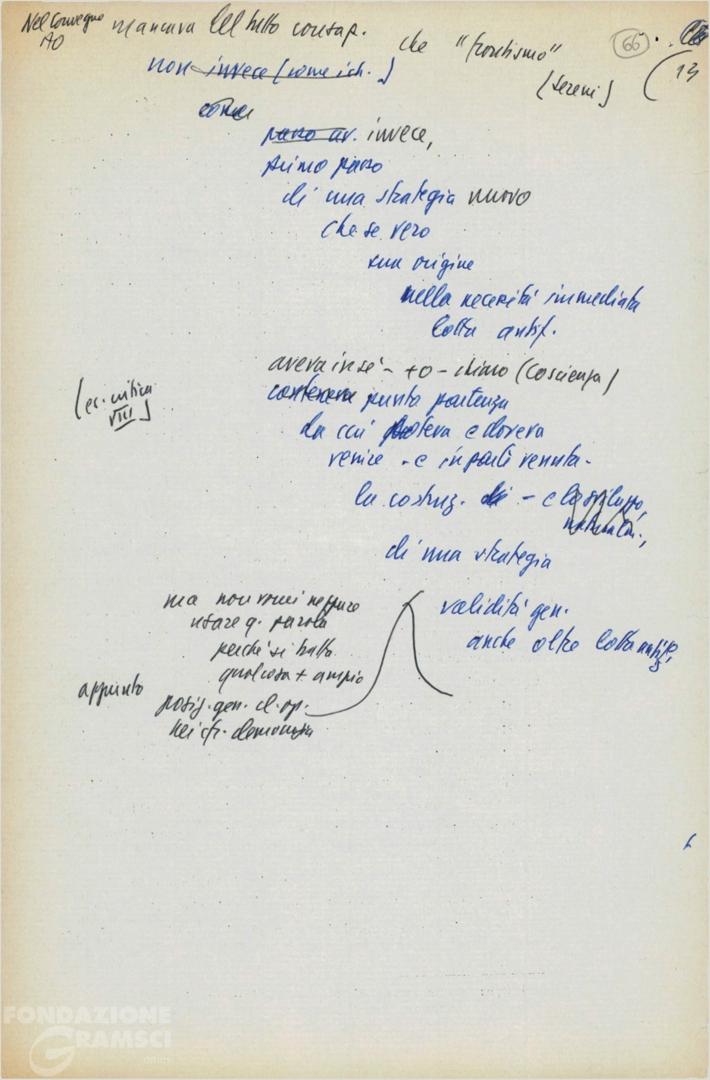 Nel Convegno
AO
mancava del tutto consap.
che "frontismo"
66
13
(Sereni)
non invece (come ich.)
come
passo av. invece,
primo passo
di una strategia nuovo
che se vero
sua origine
nella necessità immediata
lotta antif.
aveva in sé - + o - chiaro (coscienza)
(es. critica
VII)
conteneva punto partenza
da cui poteva e doveva
venire - e in parte venuta -
la costruz. di - e lo sviluppo,
di una strategia
validità gen.
anche oltre lotta antif.
ma non vorrei neppure
usare q. parola
perché si tratta
qualcosa + ampio
appunto
posiz. gen. cl. op.
nei cfr. democrazia
FONDAZIONE
GRAMSCI